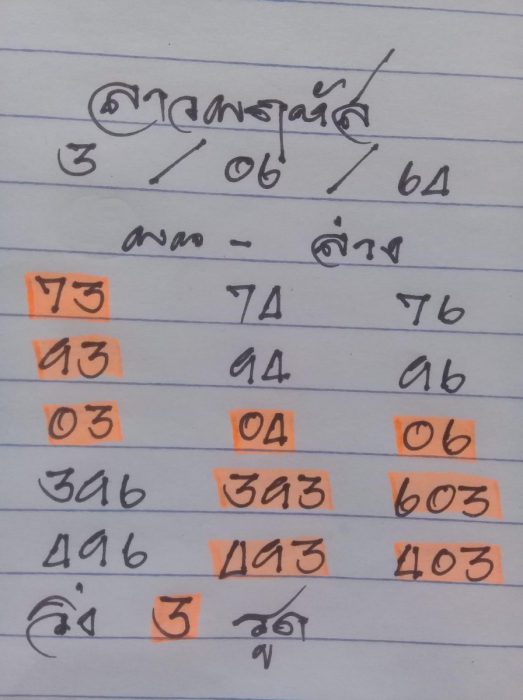 ลาวพฤหัส
3 / 06 / 64
บน - ล่าง
73 74 76
93 94 96
03 04 06
396 393 603
496 493 403
วิ่ง 3 รูด